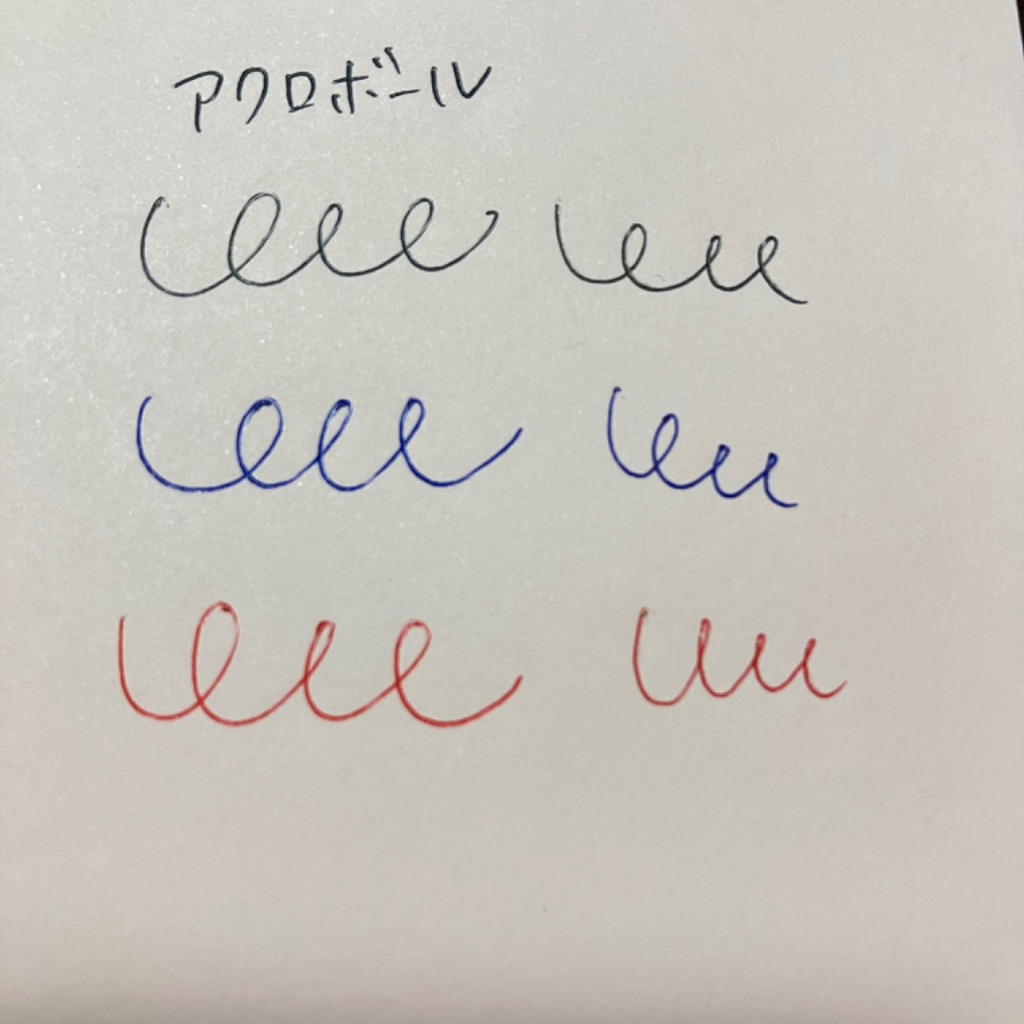 アクロボール